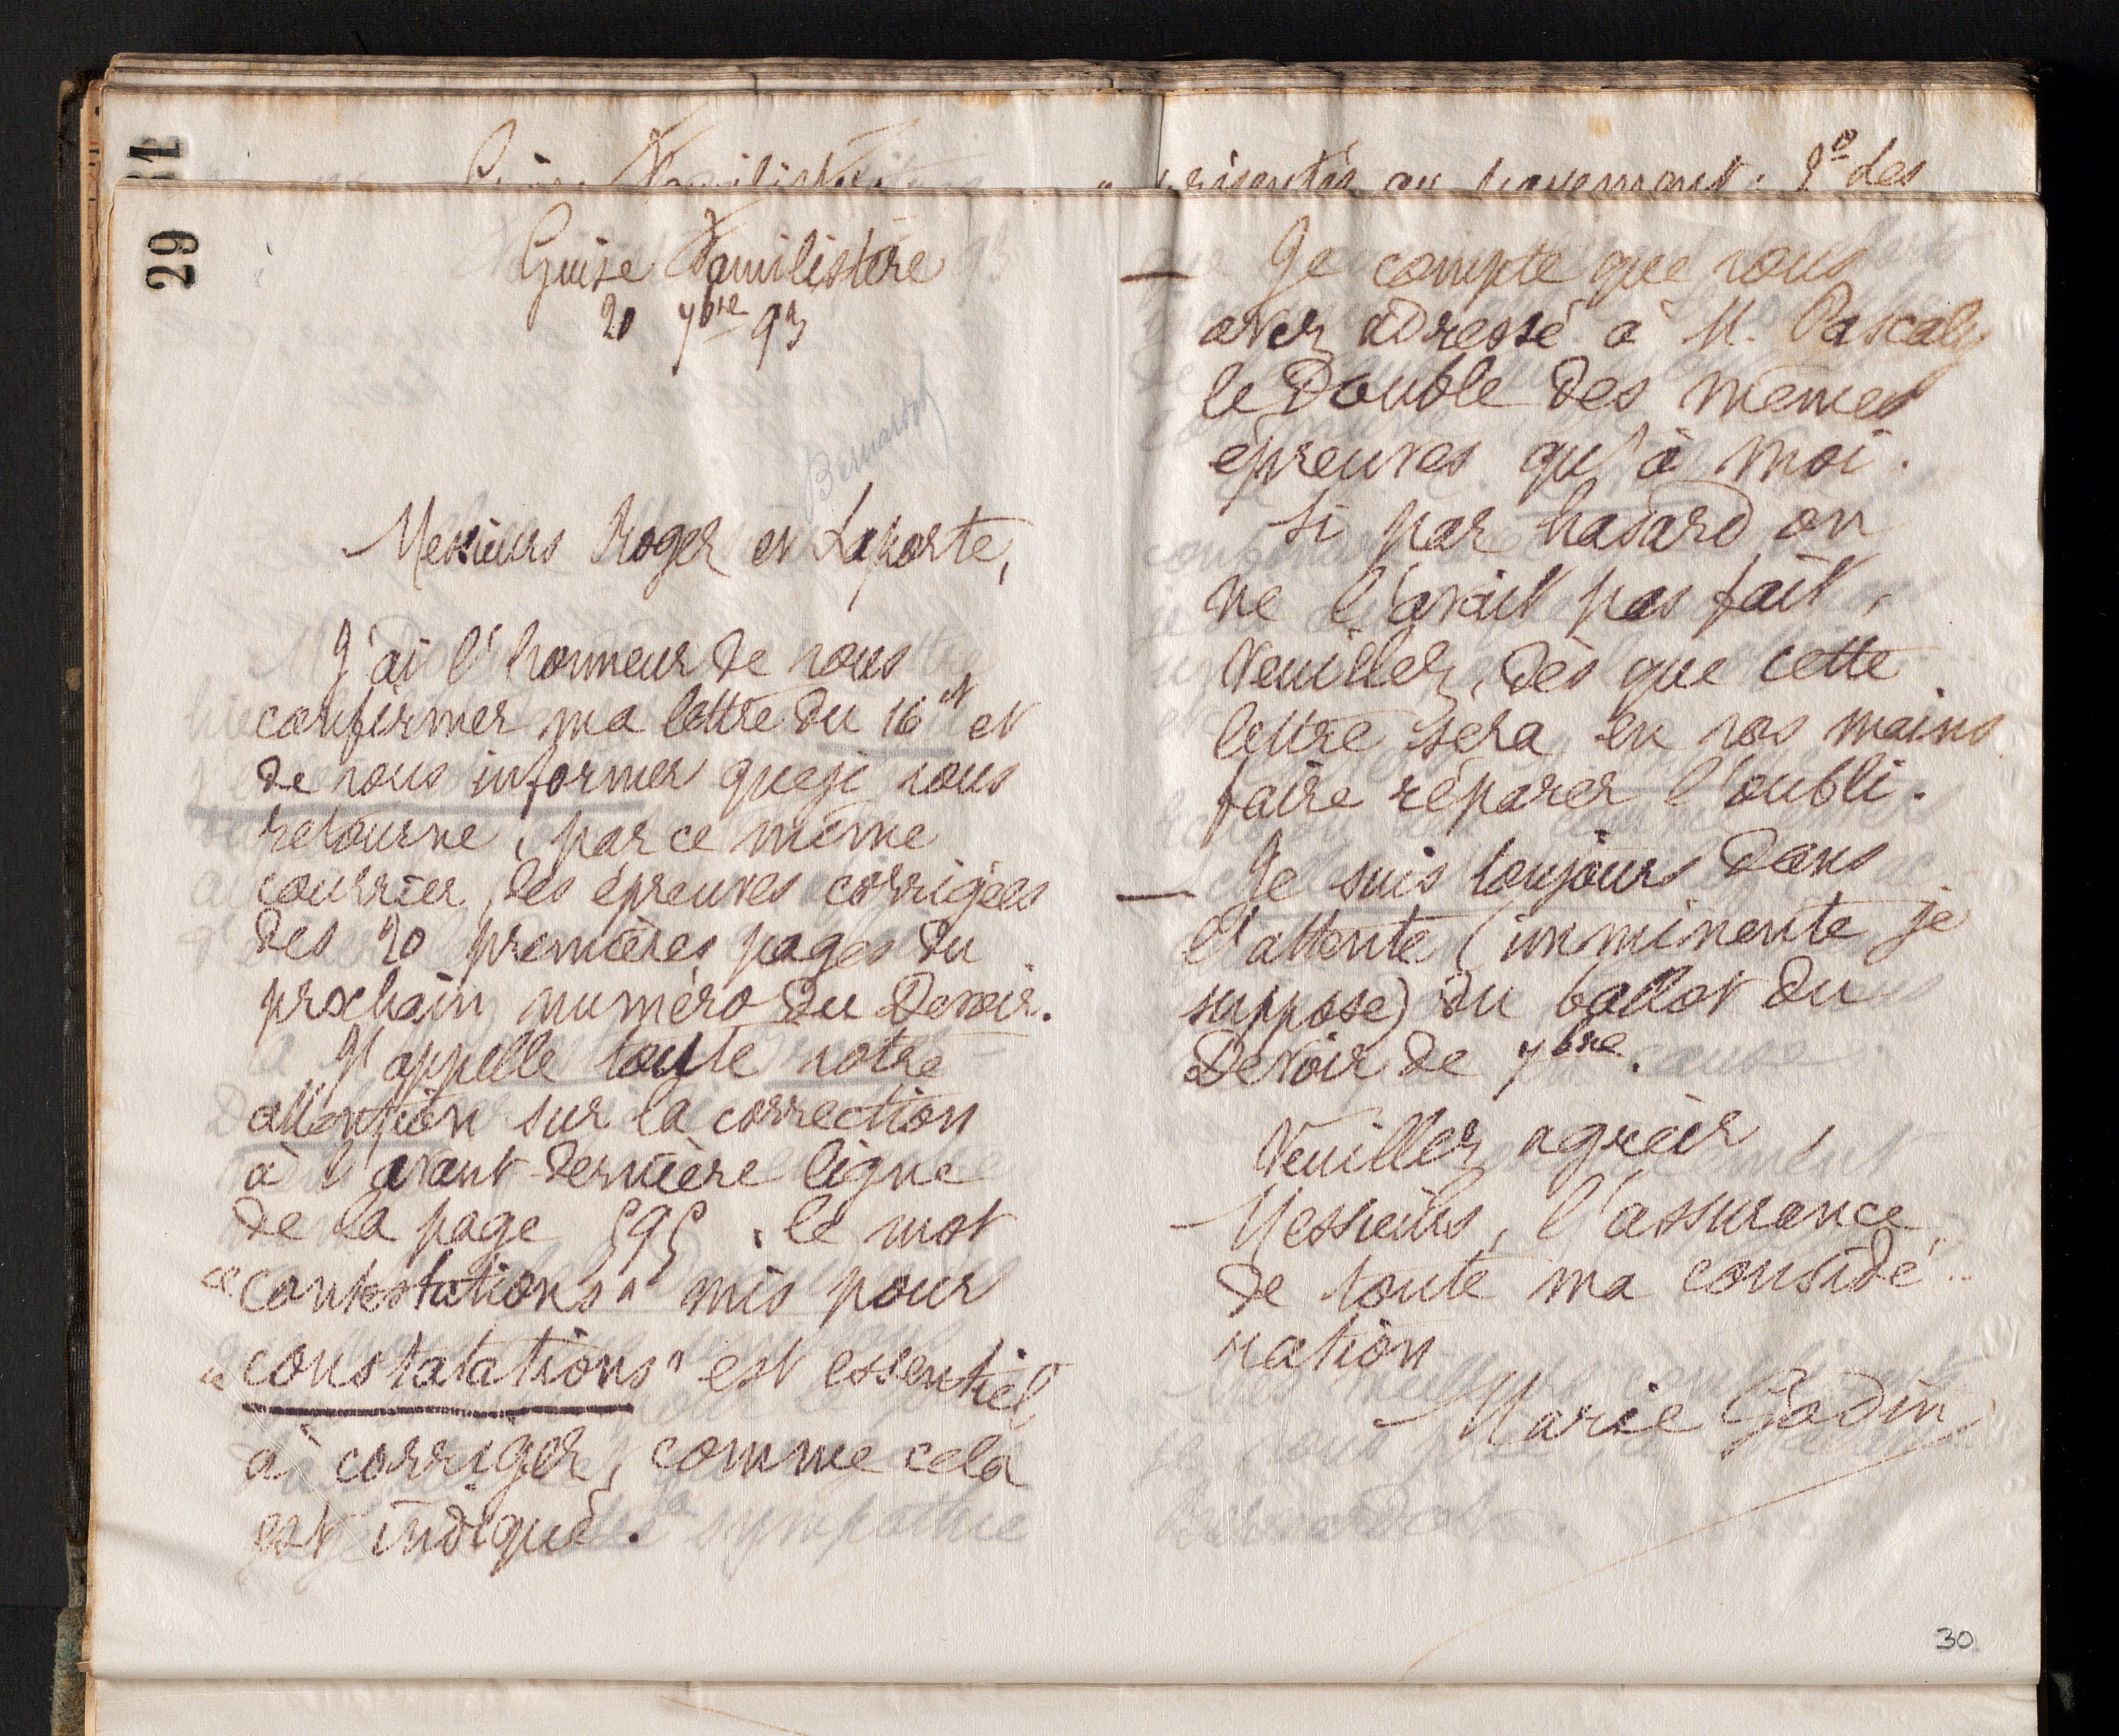 31
Guise Familistère
présentés au payement : 2º Les
29
Guise Familistère
20 7bre 93
Bernardot
Messieurs Roger et Laporte,
J'ai l'honneur de vous
confirmer ma lettre du 16 ct et
de vous informer que je vous
retourne, par ce même
courrier, les épreuves corrigées
des 20 premières pages du
prochain numéro du Devoir.
J'appelle toute votre
attention sur la correction
à l'avant-dernière ligne
de la page 595, le mot
"contestations" mis pour
"constatations" est essentiel
à corriger, comme cela
est indiqué.
— Je compte que vous
avez adressé à M. Pascaly
le double des mêmes
épreuves qu'à moi.
Si par hasard on
ne l'avait pas fait,
Veuillez, dès que cette
lettre sera en vos mains
faire réparer l'oubli.
— Je suis toujours dans
l'attente (imminente je
suppose) du ballot du
Devoir de 7bre.
Veuillez agréer,
Messieurs, l'assurance
de toute ma considé-
ration
Marie Godin
30